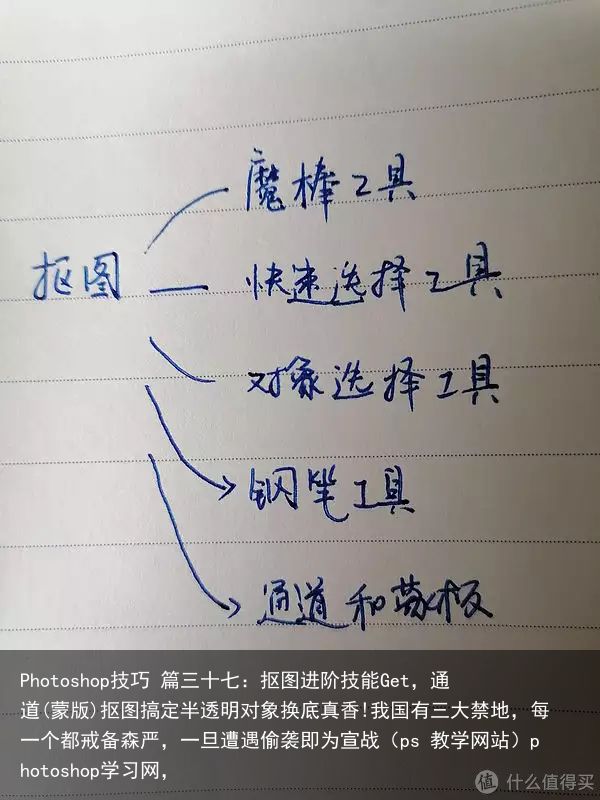 魔棒工具
抠图
快速选择工具
对象选择工具
钢笔工具
通道和蒙板
Photoshop技巧 篇三十七：抠图进阶技能Get，通
道(蒙版)抠图搞定半透明对象换底真香!我国有三大禁地，每
一个都戒备森严，一旦遭遇偷袭即为宣战（ps 教学网站）p
hotoshop学习网，
值 什么值得买